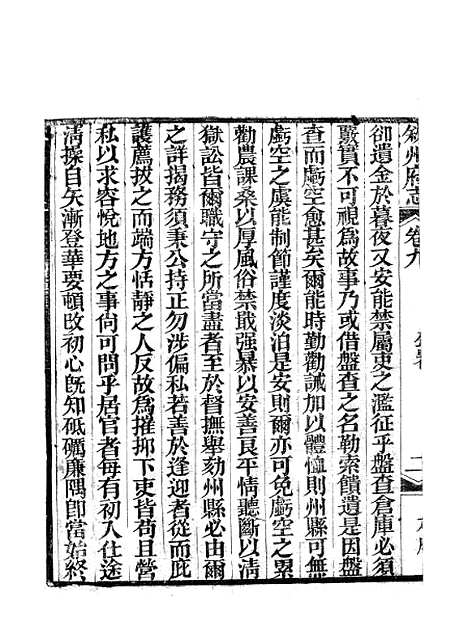 敘州府志
卷九
公署
二
卻遺金於暮夜又安能禁屬吏之濫征乎盤查倉庫必須
嚴實不可視為故事乃或借盤查之名勒索饋遺是因盤
查而虧空愈甚矣爾能時勤勸誡加以體恤則州縣可無
虧空之虞能制節謹度淡泊是安則爾亦可免虧空之累
勸農課桑以厚風俗禁戢强暴以安善良平情聽斷以清
獄訟皆爾職守之所當盡者至於督撫舉劾州縣必由爾
之詳揭務須秉公持正勿涉偏私若善於逢迎者從而庇
護薦拔之而端方恬靜之人反故為摧抑下吏皆苟且營
私以求容悅地方之事尙可問乎居官者每有初入仕途
清操自矢漸登華要頓改初心旣知砥礪廉隅卽當始終